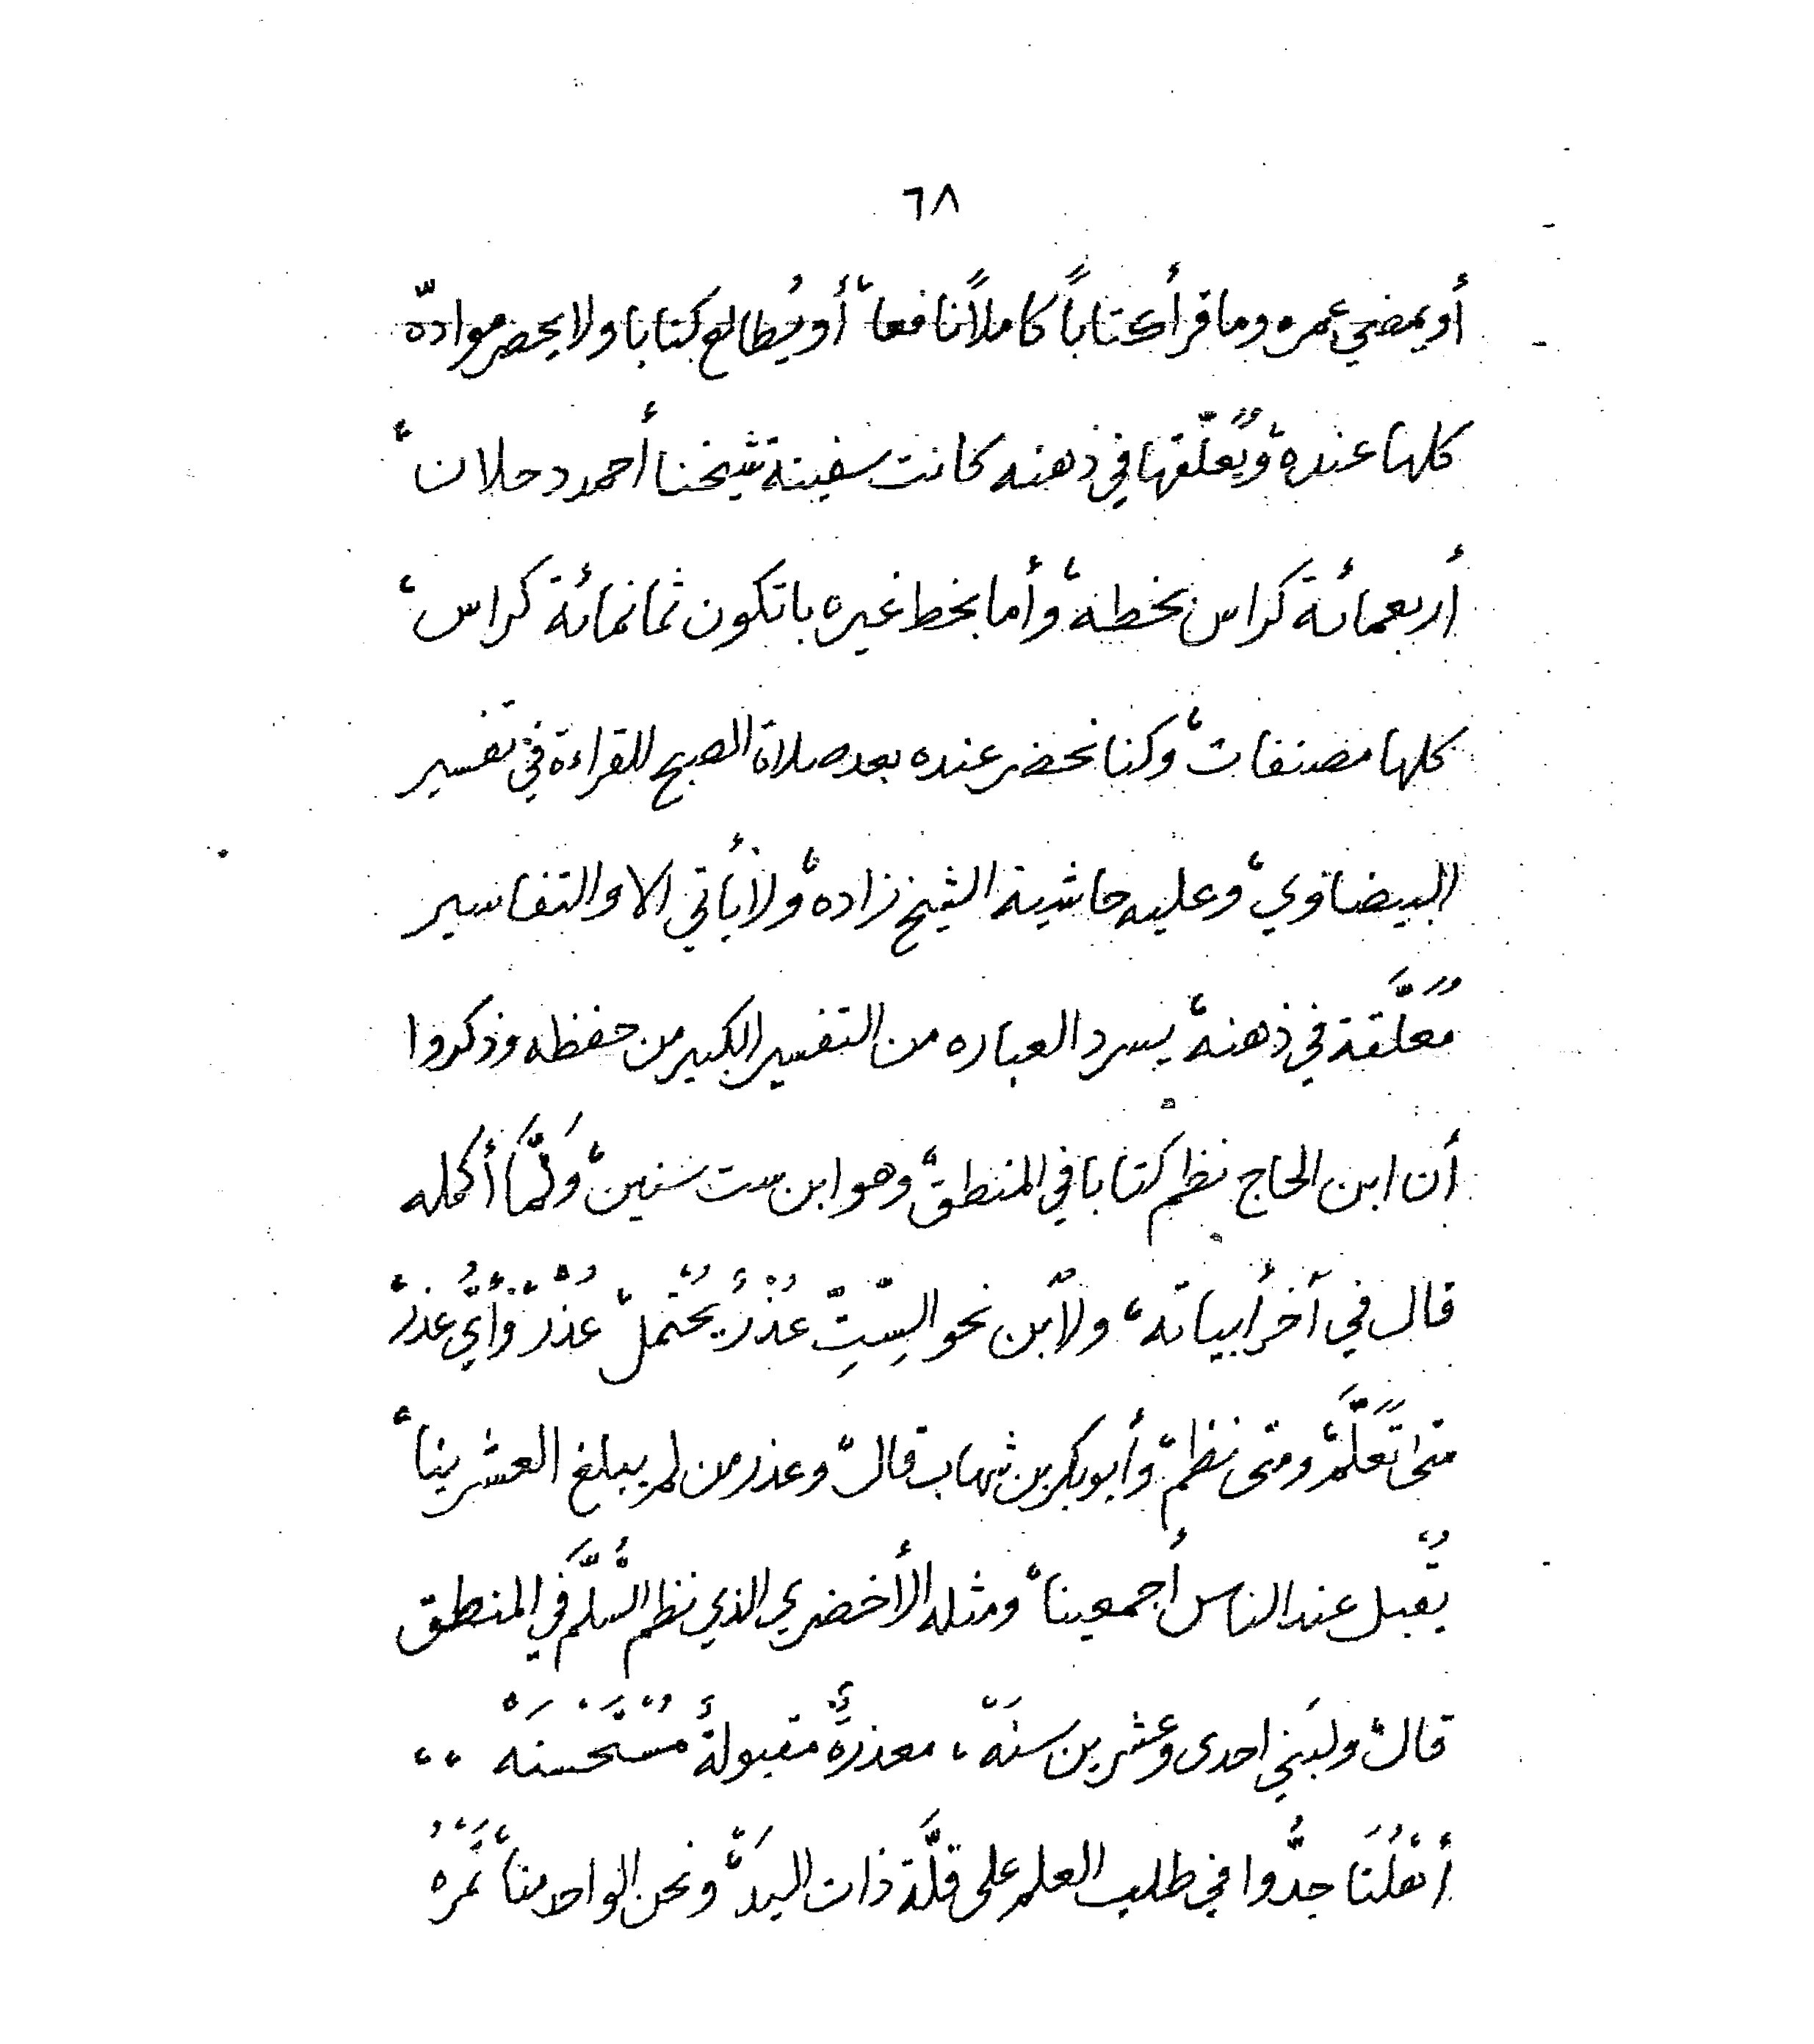 ٦٨
أو يمضي عمره وما قرأ كتاباً كاملاً نافعا، أو يُطالع كتابا ولا يحضر موادّه
كلها عنده، ويُعلّقها في ذهنه كانت سفينة شيخنا أحمد دحلان،
أربعمائة كراس بخطه، وأما بخط غيره با تكون ثمانمائة كراس،
كلها مصنفات، وكنا نحضر عنده بعد صلاة الصبح للقراءة في تفسير
البيضاوي، وعليه حاشية الشيخ زاده، ولا يأتي الا والتفاسير
مُعلَّقة في ذهنه، يسرد العباره من التفسير الكبير من حفظه وذكروا
أن ابن الحاج نظم كتابا في المنطق، وهو ابن ست سنين، ولَمَّا أكمله
قال في آخر أبياته، ولابن نحو السِّتِّ عُذْرٌ يُحْتمل، عُذْرْ وأيُّ عذرْ
متى تعلَّمْ ومتى نظمْ، وأبوبكر بن شهاب قال، وعذر من لم يبلغ العشرينا،
يُقبل عند الناس أجمعينا، ومثله الأخضري الذي نظم السُّلَّم في المنطق
قال، ولبني احدى وعشرين سنَهْ، معذرةٌ مقبولةٌ مُسْتَحْسنَهْ،،
أهْلُنَا جدُّوا في طلب العلم على قلَّة ذات اليدَ، ونحن الواحد منا، عُمره